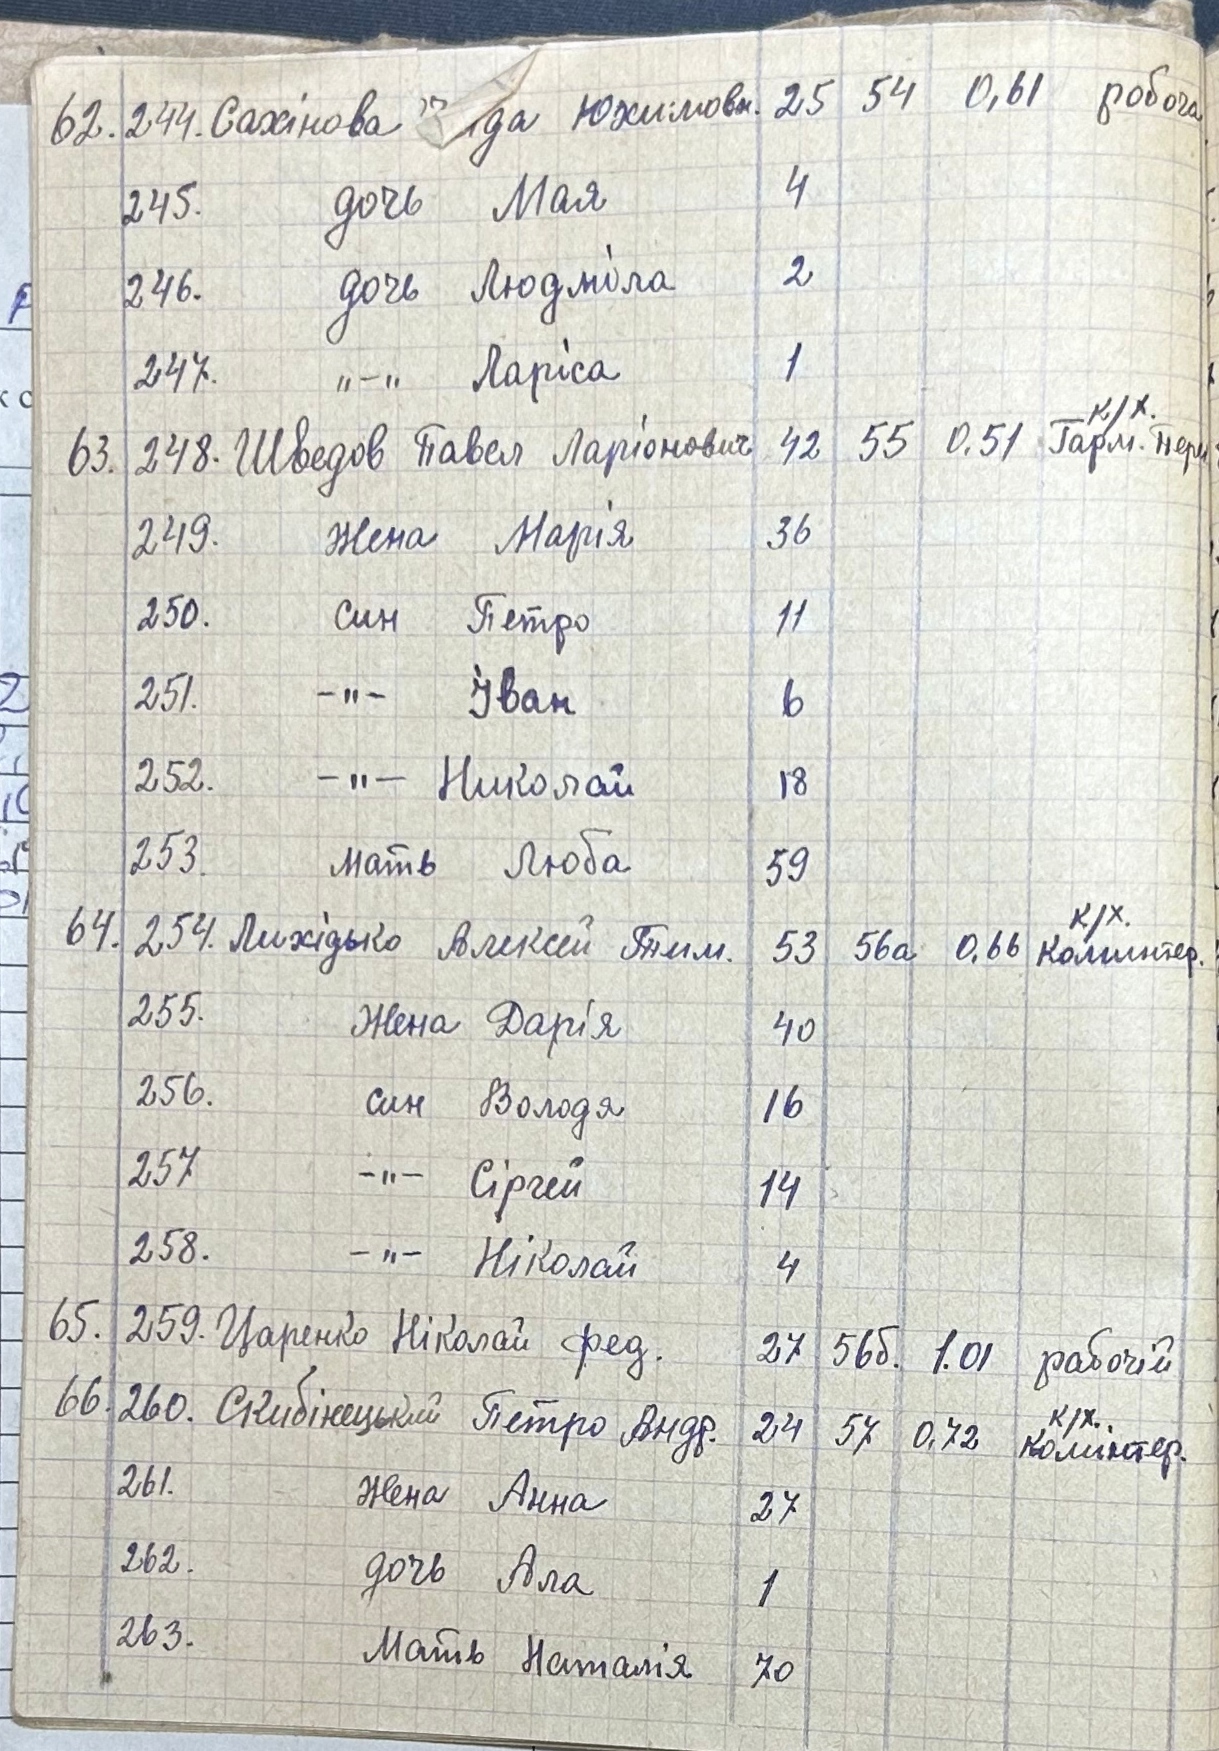 62. 244. Сахінова Юхимовн. 25 54 0,61 робоча
245. дочь Мая 4
246. дочь Людміла 2
247. „-„ Ларіса 1
63. 248. Шведов Павел Ларіонович 42 55 0.51 к/х. Гарм.
249. Жена Марія 36
250. син Петро 11
251. -"- Іван 6
252. -"- Николай 18
253. Мать Люба 59
64. 254. Лихідько Алексей Тим. 53 56а 0,66 к/х. Коминтер.
255. Жена Дарія 40
256. син Володя 16
257 -"- Сіргей 14
258. -"- Ніколай 4
65. 259. Царенко Ніколай фед. 27 56б. 1.01 рабочій
66. 260. Скибінецький Петро Андр. 24 57 0,72 к/х. Комінтер.
261. Жена Анна 27
262. дочь Ала 1
263. Мать Наталія 70